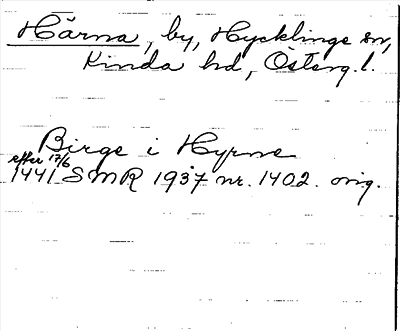 Härna, by, Hycklinge sn,
Kinda hd, Österg.l.
Birge i Hyrne
efter 17/6
1441 SMR 1937 nr. 1402. orig.